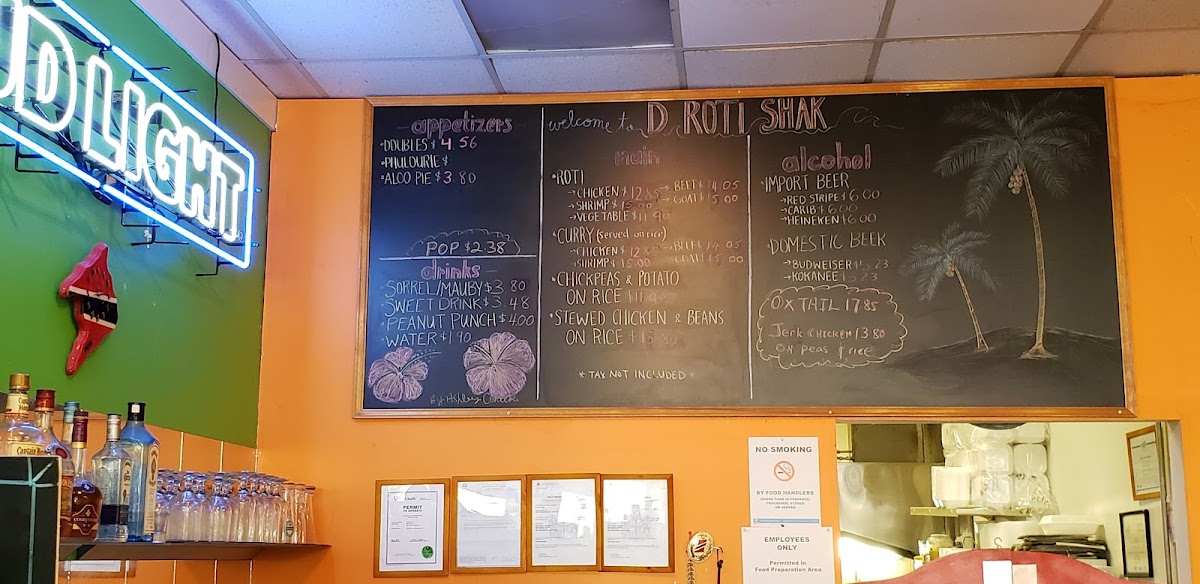 UD LIGHT
appetizers
• DOUBLES $4.56
• PHULOURIE $
• ALOO PIE $3.80
POP $2.38
drinks
• SORREL/MAUBY $3.80
• SWEET DRINK $3.48
• PEANUT PUNCH $4.00
• WATER $1.90
By Ashley
welcome to D ROTI SHAK
main
• ROTI
→ CHICKEN $12.85 → BEEF $14.05
→ SHRIMP $15.00 → GOAT $15.00
→ VEGETABLE $11.90
• CURRY (served on rice)
→ CHICKEN $12.85 → BEEF $14.05
→ SHRIMP $15.00 → GOAT $15.00
• CHICKPEAS & POTATO
ON RICE
• STEWED CHICKEN & BEANS
ON RICE $13.80
* TAX NOT INCLUDED *
alcohol
• IMPORT BEER
→ RED STRIPE $6.00
→ CARIB $6.00
→ HEINEKEN $6.00
• DOMESTIC BEER
→ BUDWEISER $5.23
→ KOKANEE $5.23
OXTAIL 17.85
Jerk CHICKEN 13.80
ON Peas & rice
PERMIT
TO OPERATE
NO SMOKING
BY FOOD HANDLERS
WHERE FOOD IS PREPARED,
PROCESSED, STORED
OR SERVED
EMPLOYEES
ONLY
Permitted in
Food Preparation Area